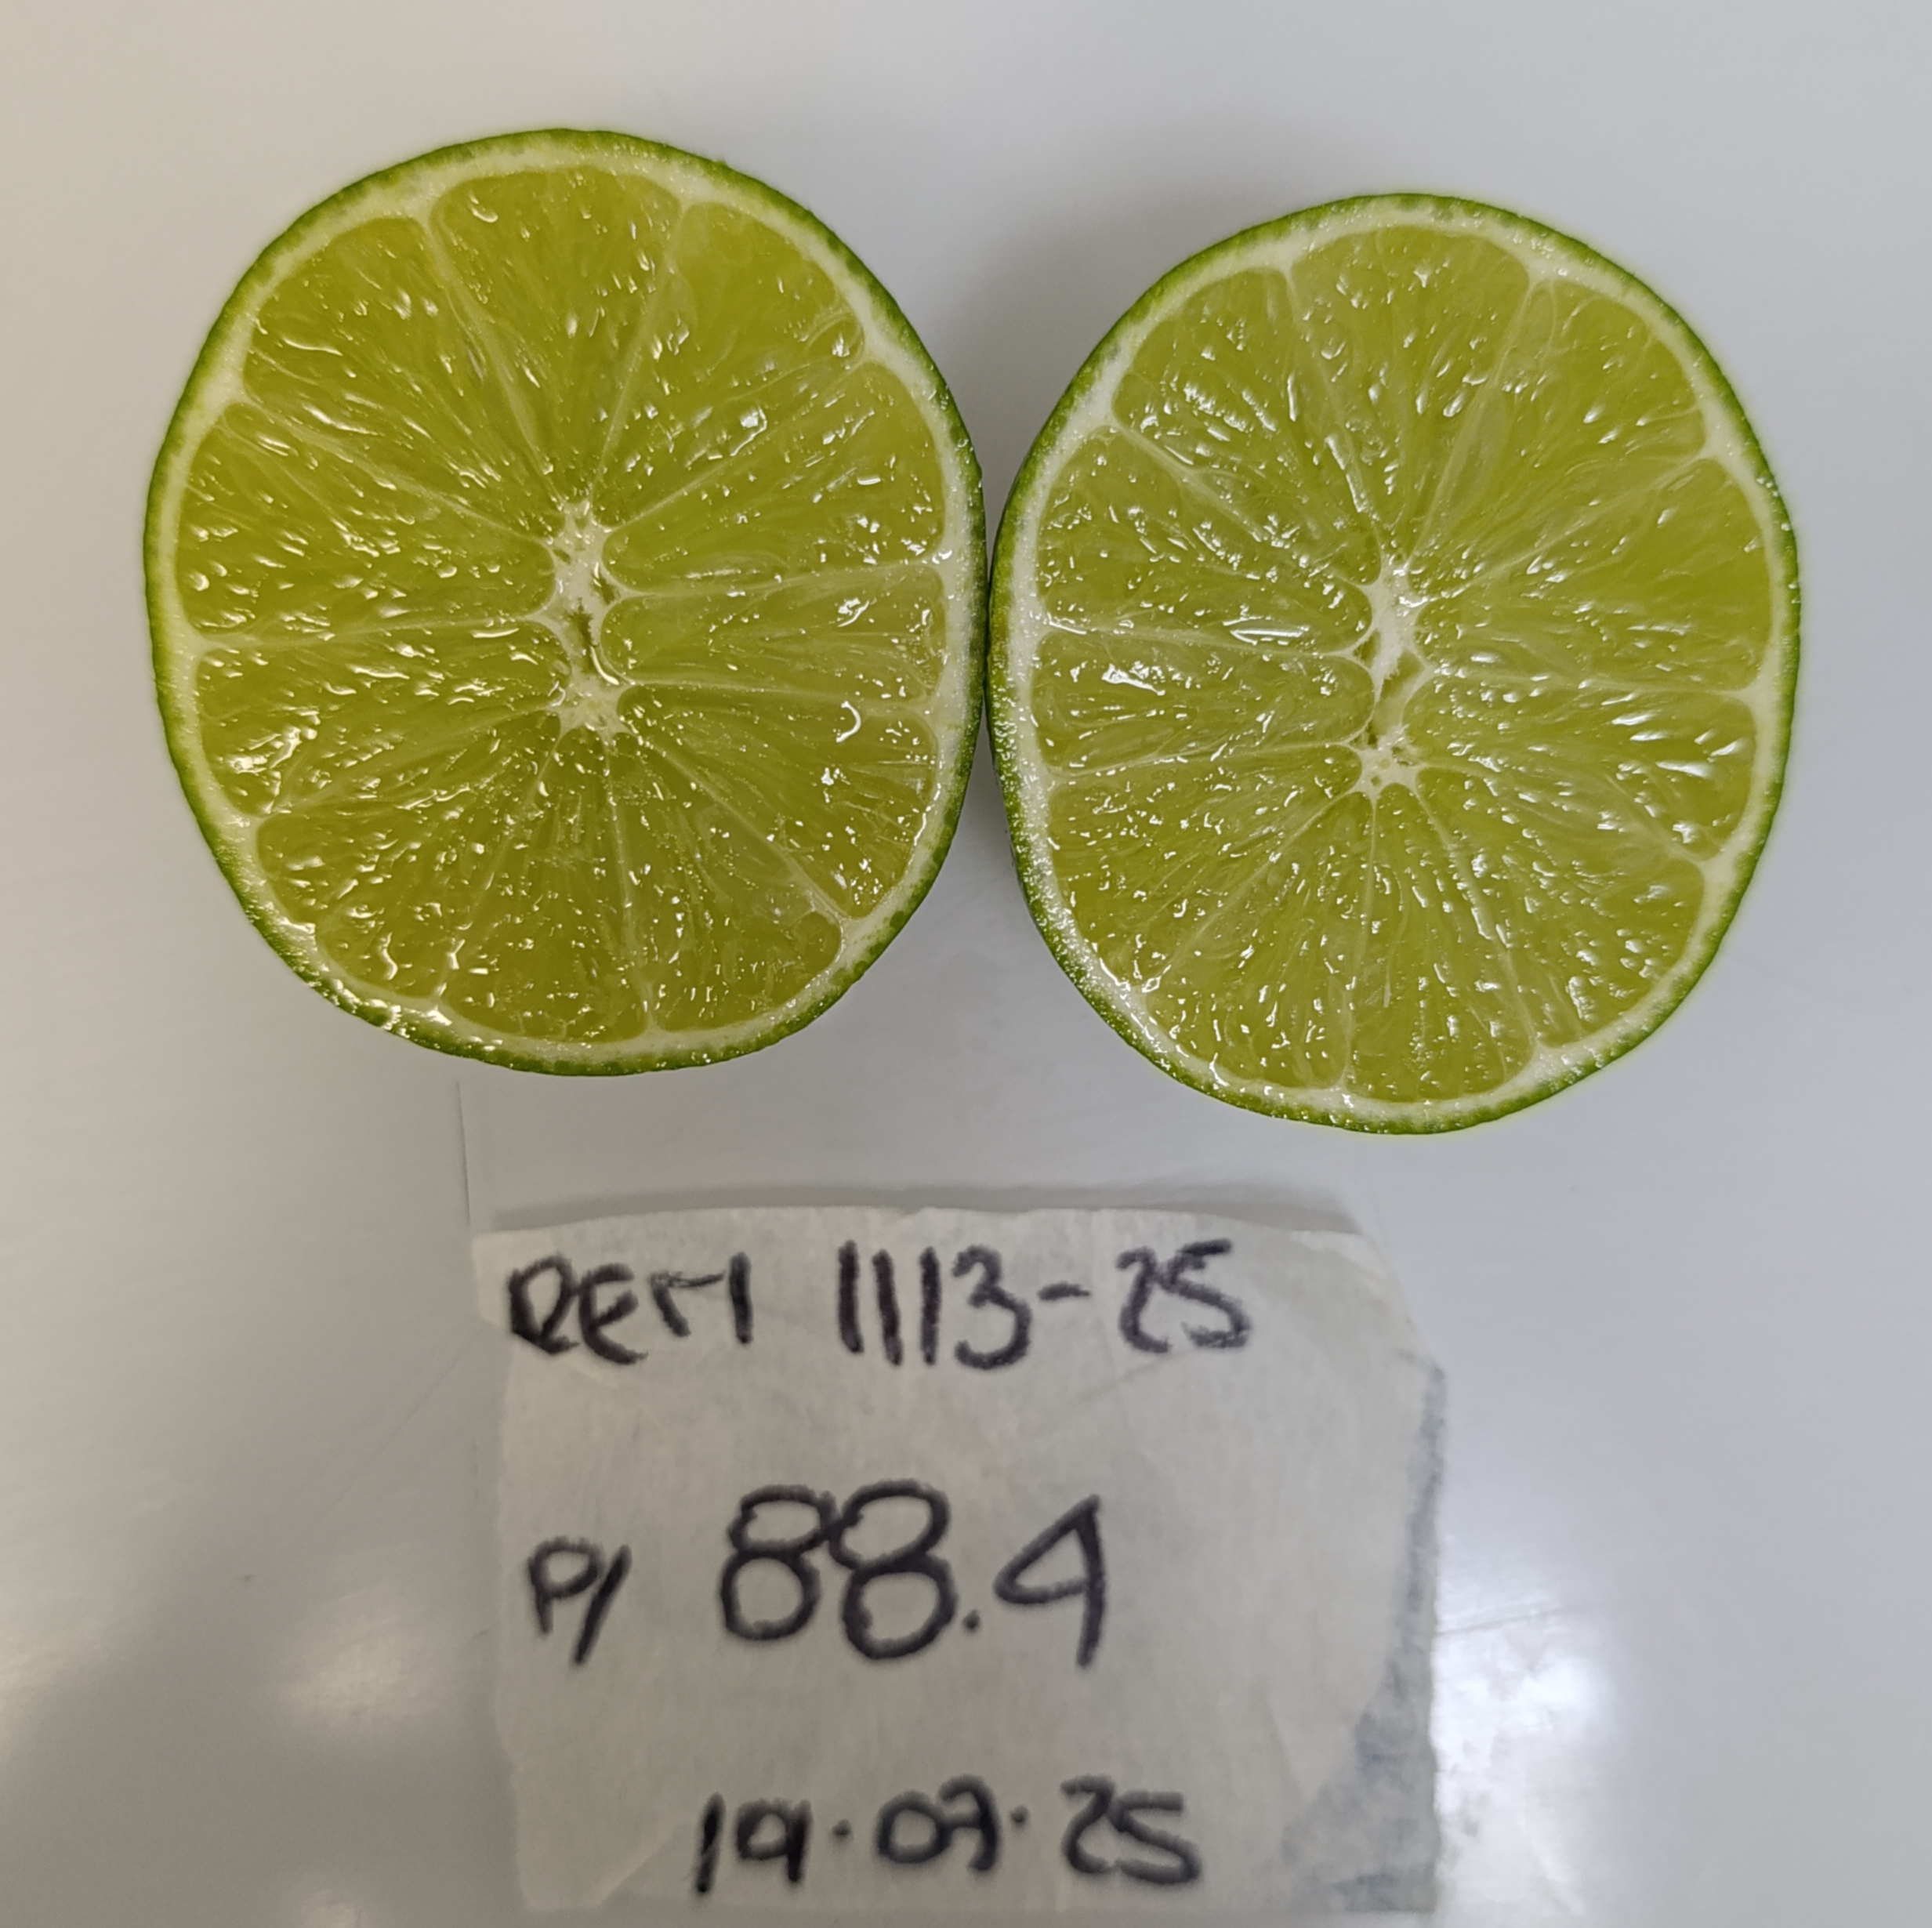 REM 1113-25
P/ 88.4
19.07.25